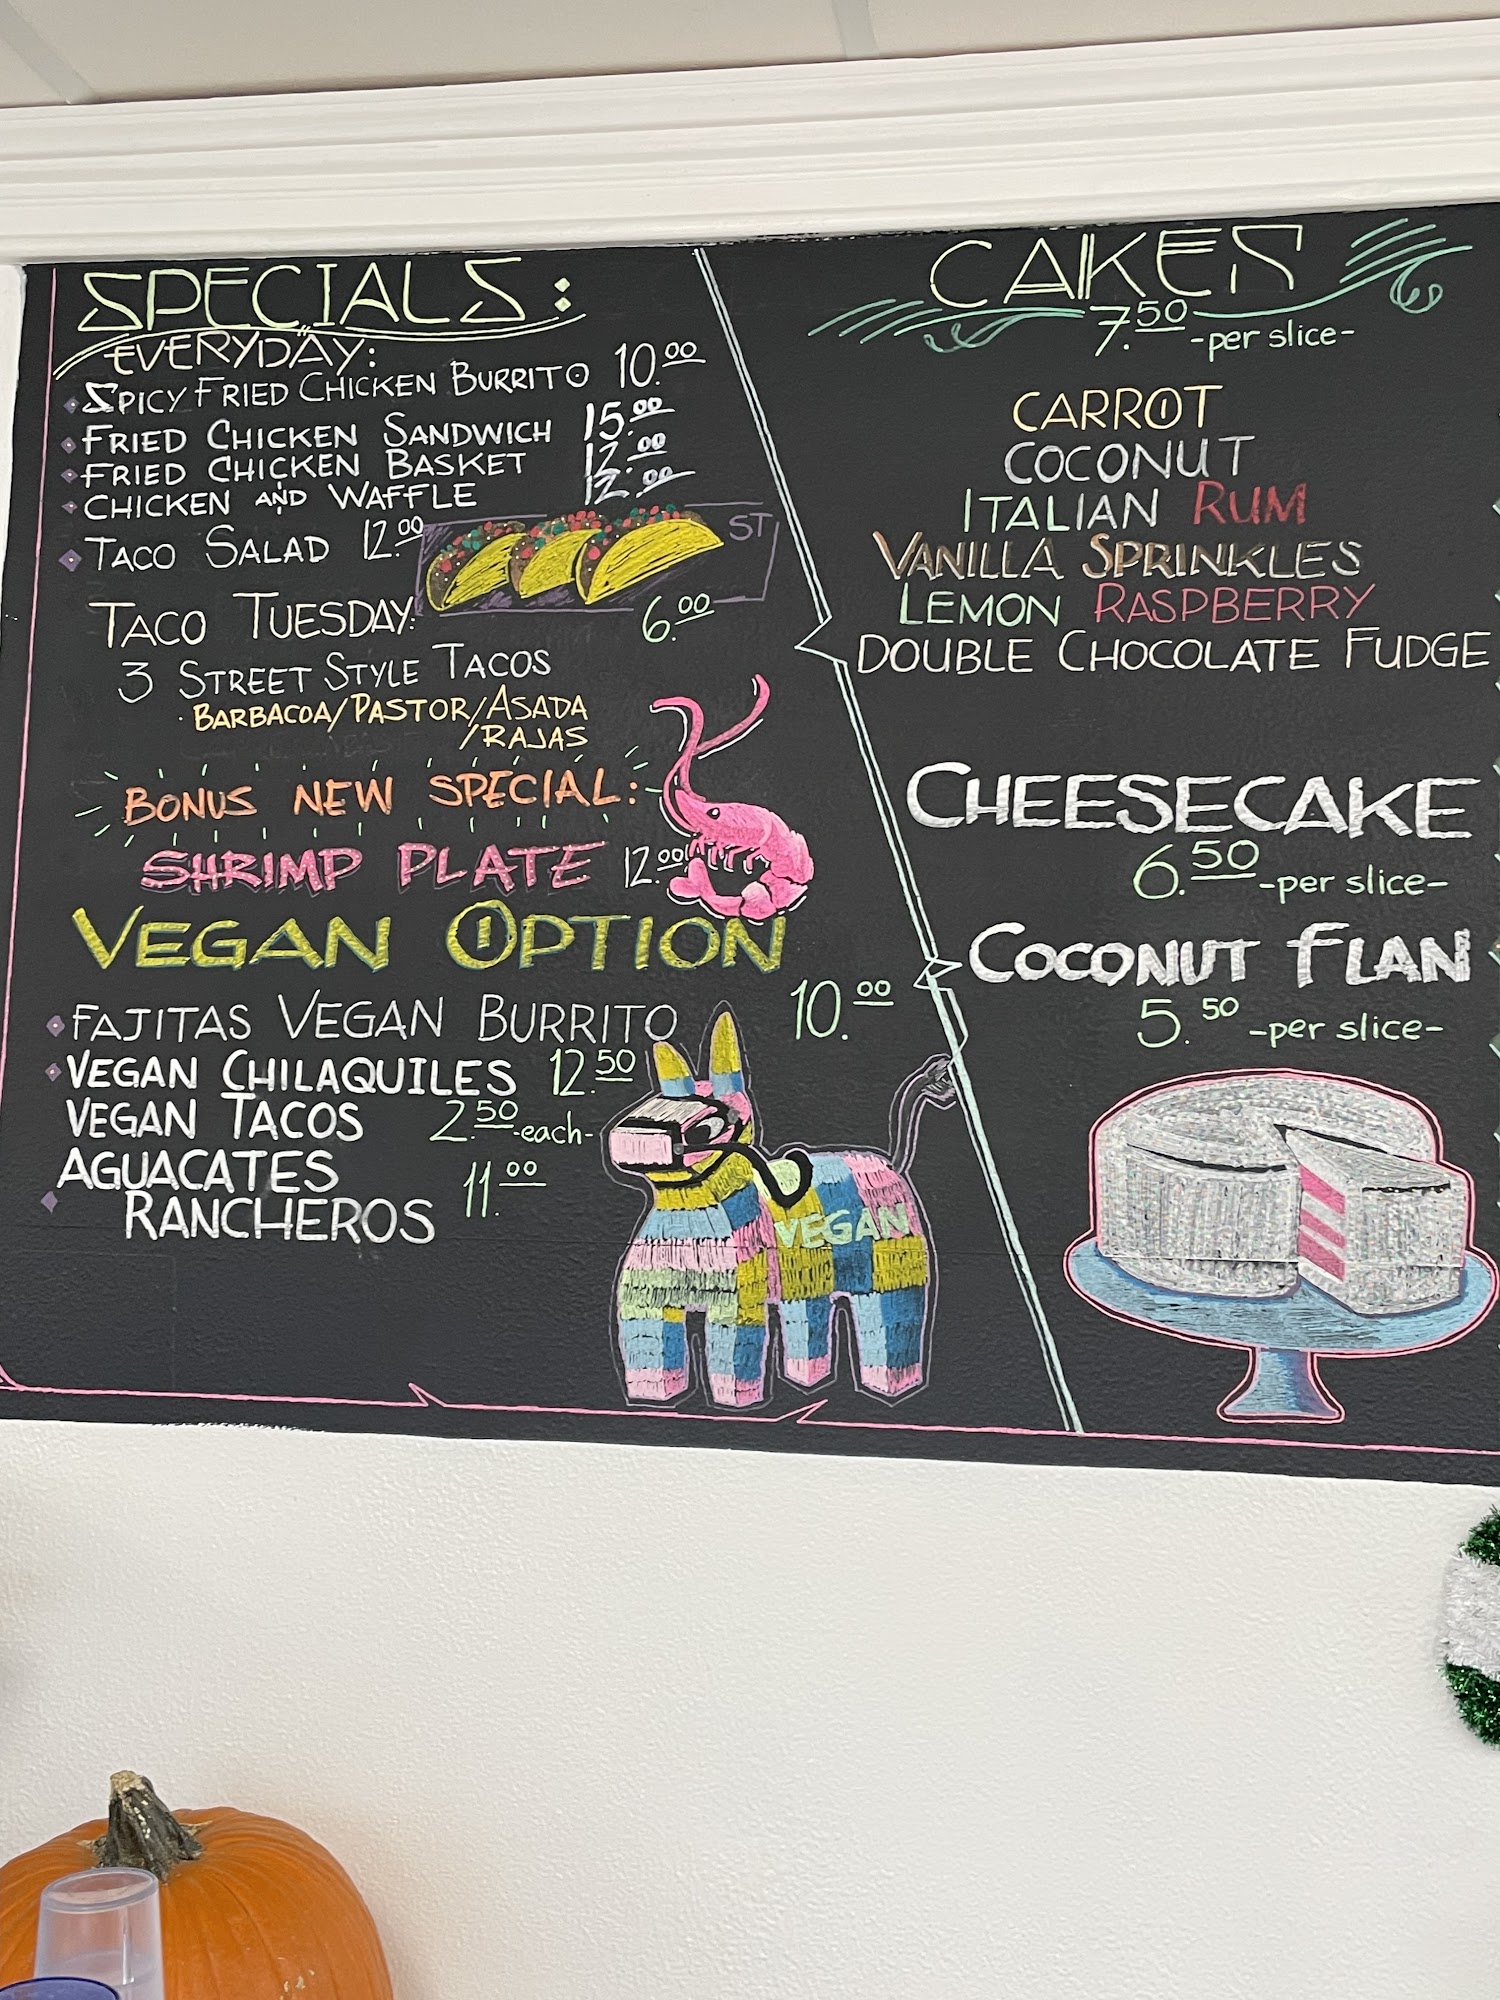 SPECIALS:
EVERYDAY:
SPICY FRIED CHICKEN BURRITO 10.00
FRIED CHICKEN SANDWICH 15.00
FRIED CHICKEN BASKET 12.00
CHICKEN AND WAFFLE 12.00
TACO SALAD 12.00
ST
TACO TUESDAY: 6.00
3 STREET STYLE TACOS
BARBACOA/PASTOR/ASADA
/RAJAS
BONUS NEW SPECIAL:
SHRIMP PLATE 12.00
VEGAN OPTION
FAJITAS VEGAN BURRITO 10.00
VEGAN CHILAQUILES 12.50
VEGAN TACOS 2.50 -each-
AGUACATES
RANCHEROS 11.00
VEGAN
CAKES
7.50 -per slice-
CARROT
COCONUT
ITALIAN RUM
VANILLA SPRINKLES
LEMON RASPBERRY
DOUBLE CHOCOLATE FUDGE
CHEESECAKE
6.50 -per slice-
COCONUT FLAN
5.50 -per slice-